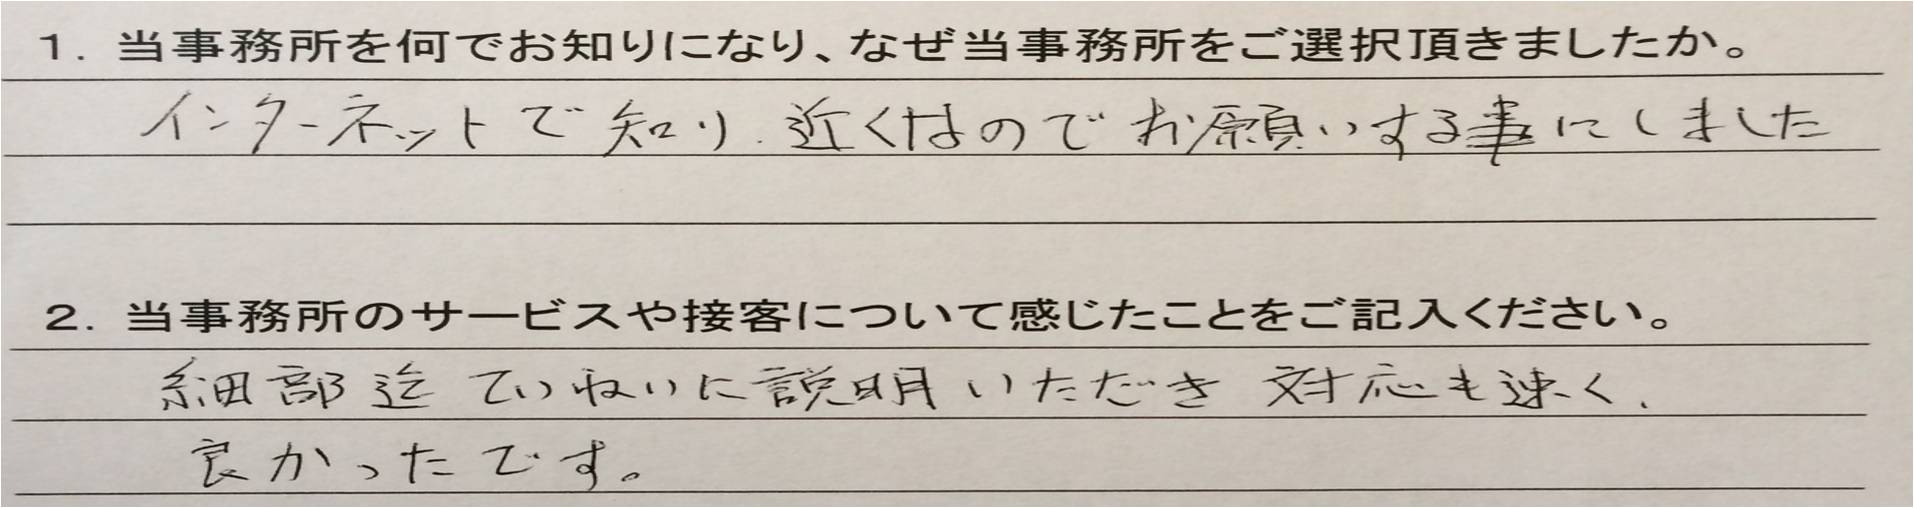 1. 当事務所を何でお知りになり、なぜ当事務所をご選択頂きましたか。
インターネットで知り、近くなのでお願いする事にしました
2. 当事務所のサービスや接客について感じたことをご記入ください。
細部迄ていねいに説明いただき対応も速く、
良かったです。